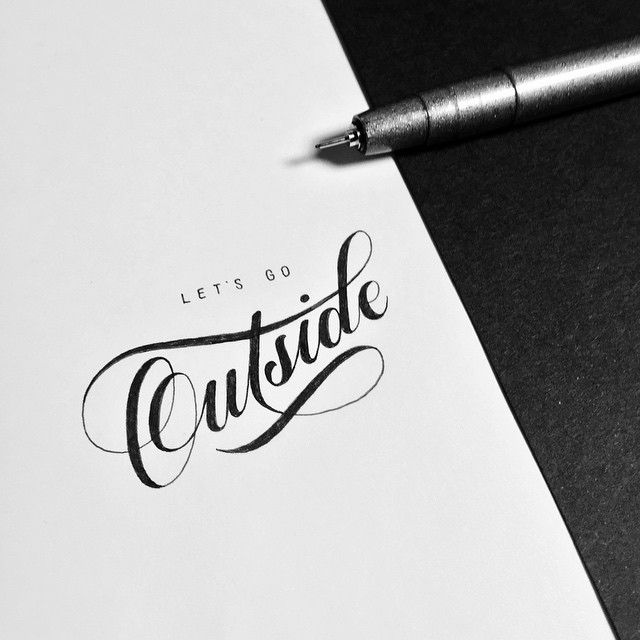 LET'S GO
Outside